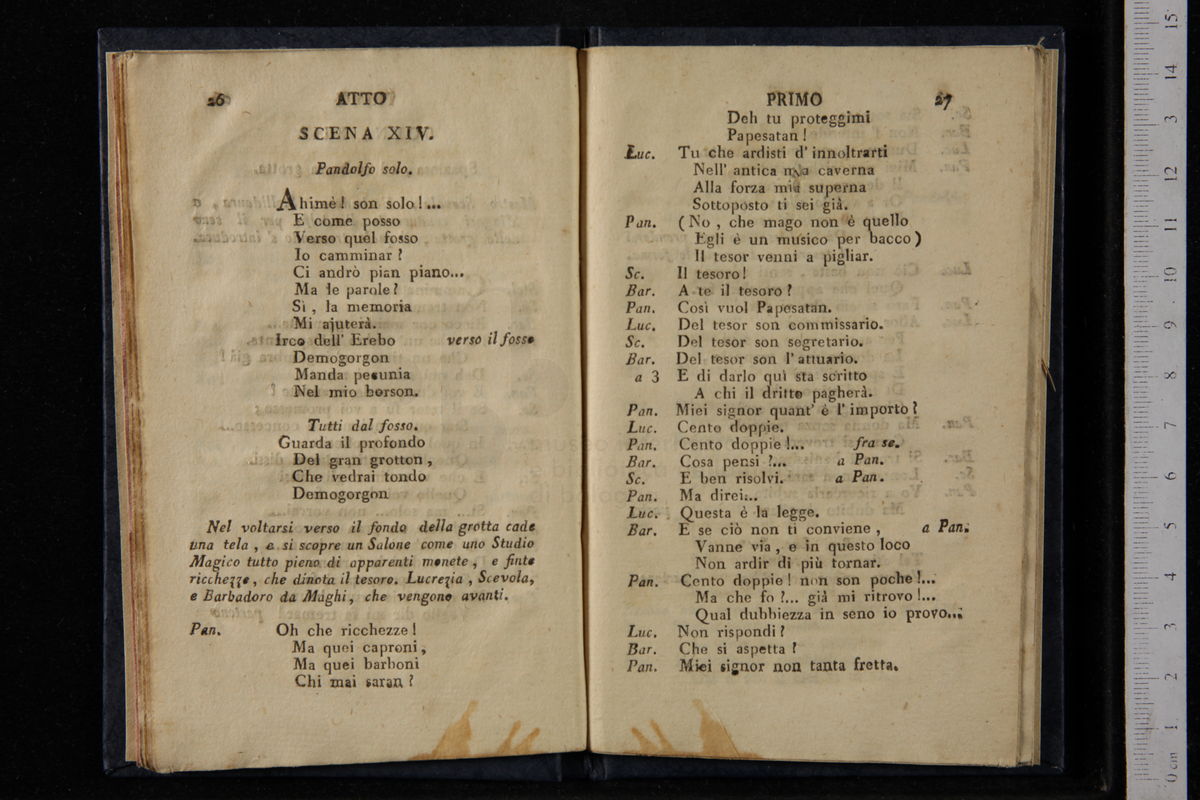 26 ATTO
SCENA XIV.
Pandolfo solo.
Ahimè! son solo!...
E come posso
Verso quel fosso
Io camminar?
Ci andrò pian piano...
Ma le parole?
Sì, la memoria
Mi ajuterà.
Irco dell' Erebo verso il fosso
Demogorgon
Manda pecunia
Nel mio borson.
Tutti dal fosso.
Guarda il profondo
Del gran grotton,
Che vedrai tondo
Demogorgon
Nel voltarsi verso il fondo della grotta cade
una tela, e si scopre un Salone come uno Studio
Magico tutto pieno di apparenti monete, e finte
ricchezze, che dinota il tesoro. Lucrezia, Scevola,
e Barbadoro da Maghi, che vengono avanti.
Pan. Oh che ricchezze!
Ma quei caproni,
Ma quei barboni
Chi mai saran?
PRIMO 27
Deh tu proteggimi
Papesatan!
Luc. Tu che ardisti d' innoltrarti
Nell' antica mia caverna
Alla forza mia superna
Sottoposto ti sei già.
Pan. (No, che mago non è quello
Egli è un musico per bacco)
Il tesor venni a pigliar.
Sc. Il tesoro!
Bar. A te il tesoro?
Pan. Così vuol Papesatan.
Luc. Del tesor son commissario.
Sc. Del tesor son segretario.
Bar. Del tesor son l' attuario.
a 3 E di darlo quì sta scritto
A chi il dritto pagherà.
Pan. Miei signor quant' è l' importo?
Luc. Cento doppie.
Pan. Cento doppie!... fra se.
Bar. Cosa pensi?... a Pan.
Sc. E ben risolvi. a Pan.
Pan. Ma direi...
Luc. Questa è la legge.
Bar. E se ciò non ti conviene, a Pan.
Vanne via, e in questo loco
Non ardir di più tornar.
Pan. Cento doppie! non son poche!...
Ma che fo?... già mi ritrovo!...
Qual dubbiezza in seno io provo...
Luc. Non rispondi?
Bar. Che si aspetta?
Pan. Miei signor non tanta fretta.
0 cm 1 2 3 4 5 6 7 8 9 10 11 12 13 14 15